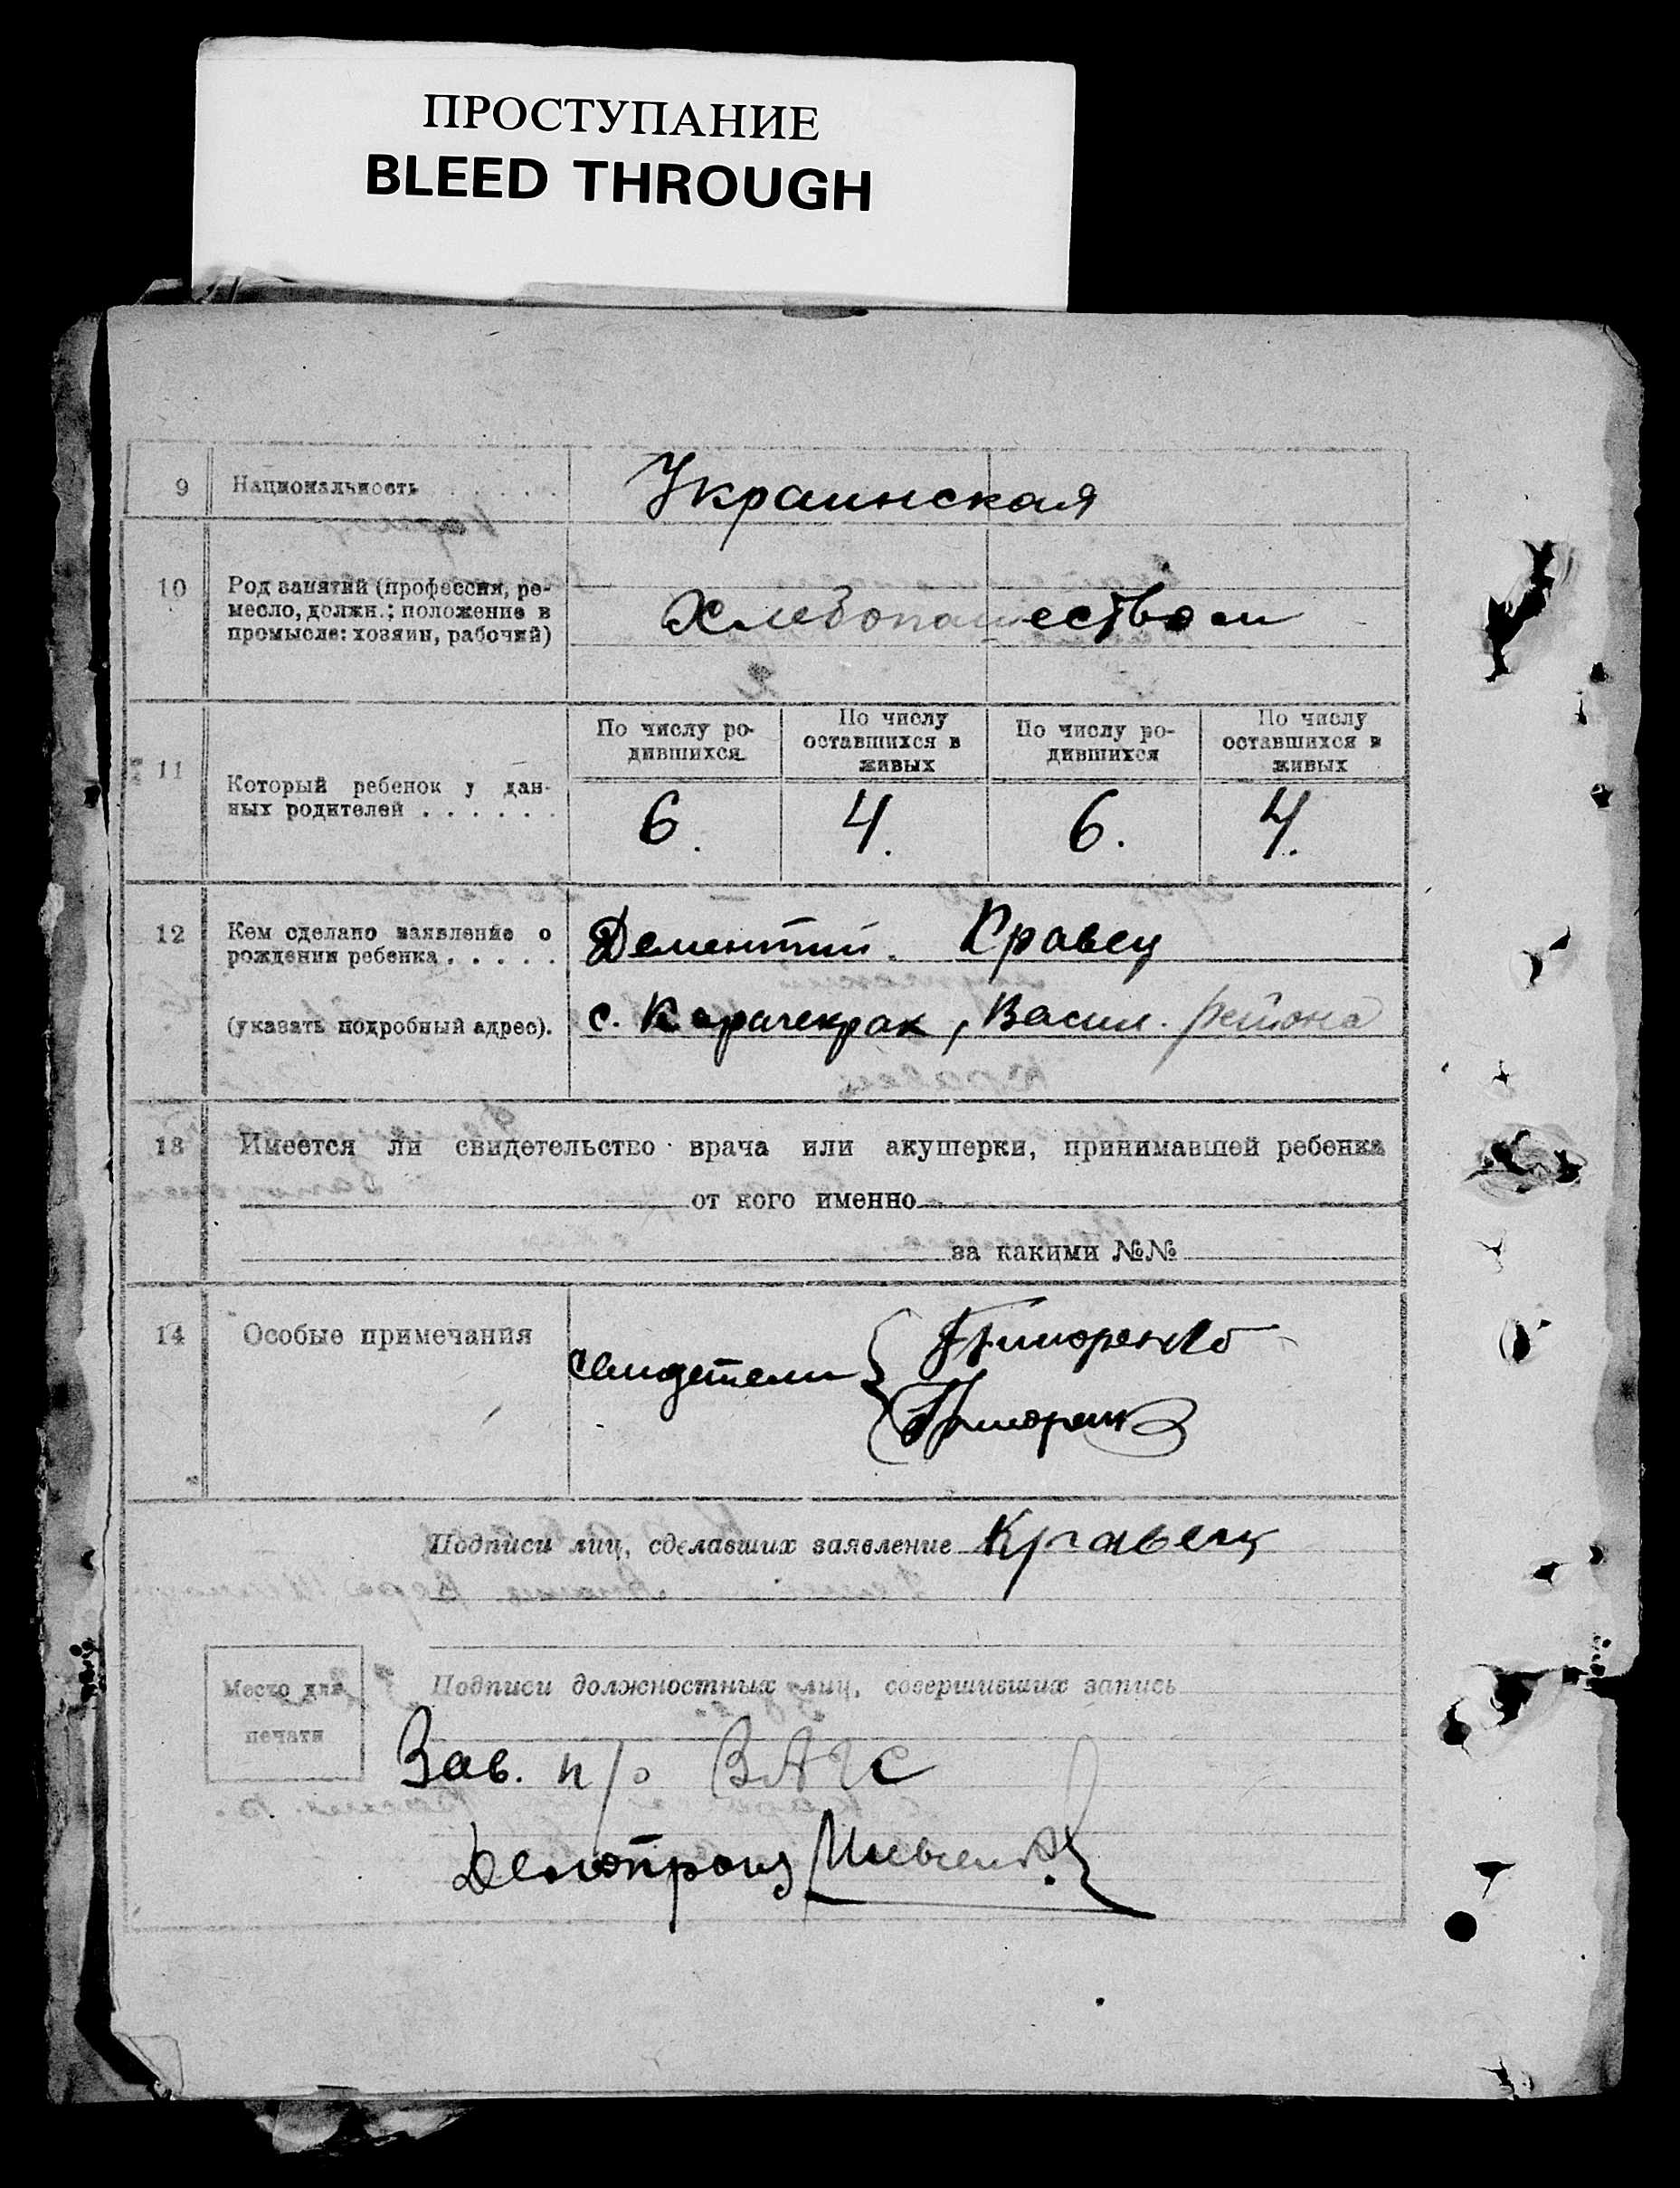 ПРОСТУПАНИЕ
BLEED THROUGH
9 Национальность . . . . . Украинская
10 Род занятий (профессия, ре-
месло, должн.; положение в
промысле: хозяин, рабочий)
Хлебопашеством
11 Который ребенок у дан-
ных родителей . . . . . .
По числу ро-
дившихся
По числу
оставшихся в
живых
По числу ро-
дившихся
По числу
оставшихся в
живых
6. 4. 6. 4.
12 Кем сделано заявление о
рождении ребенка . . . . .
(указать подробный адрес).
Дементий. Кравец
с. Карачекрак, Васил. района
13 Имеется ли свидетельство врача или акушерки, принимавшей ребенка
от кого именно
за какими №№
14 Особые примечания
свидетели
Подписи лиц, сделавших заявление Кравец
Место для
печати
Подписи должностных лиц, совершивших запись
Зав. п/о ЗАГС
Делопроиз